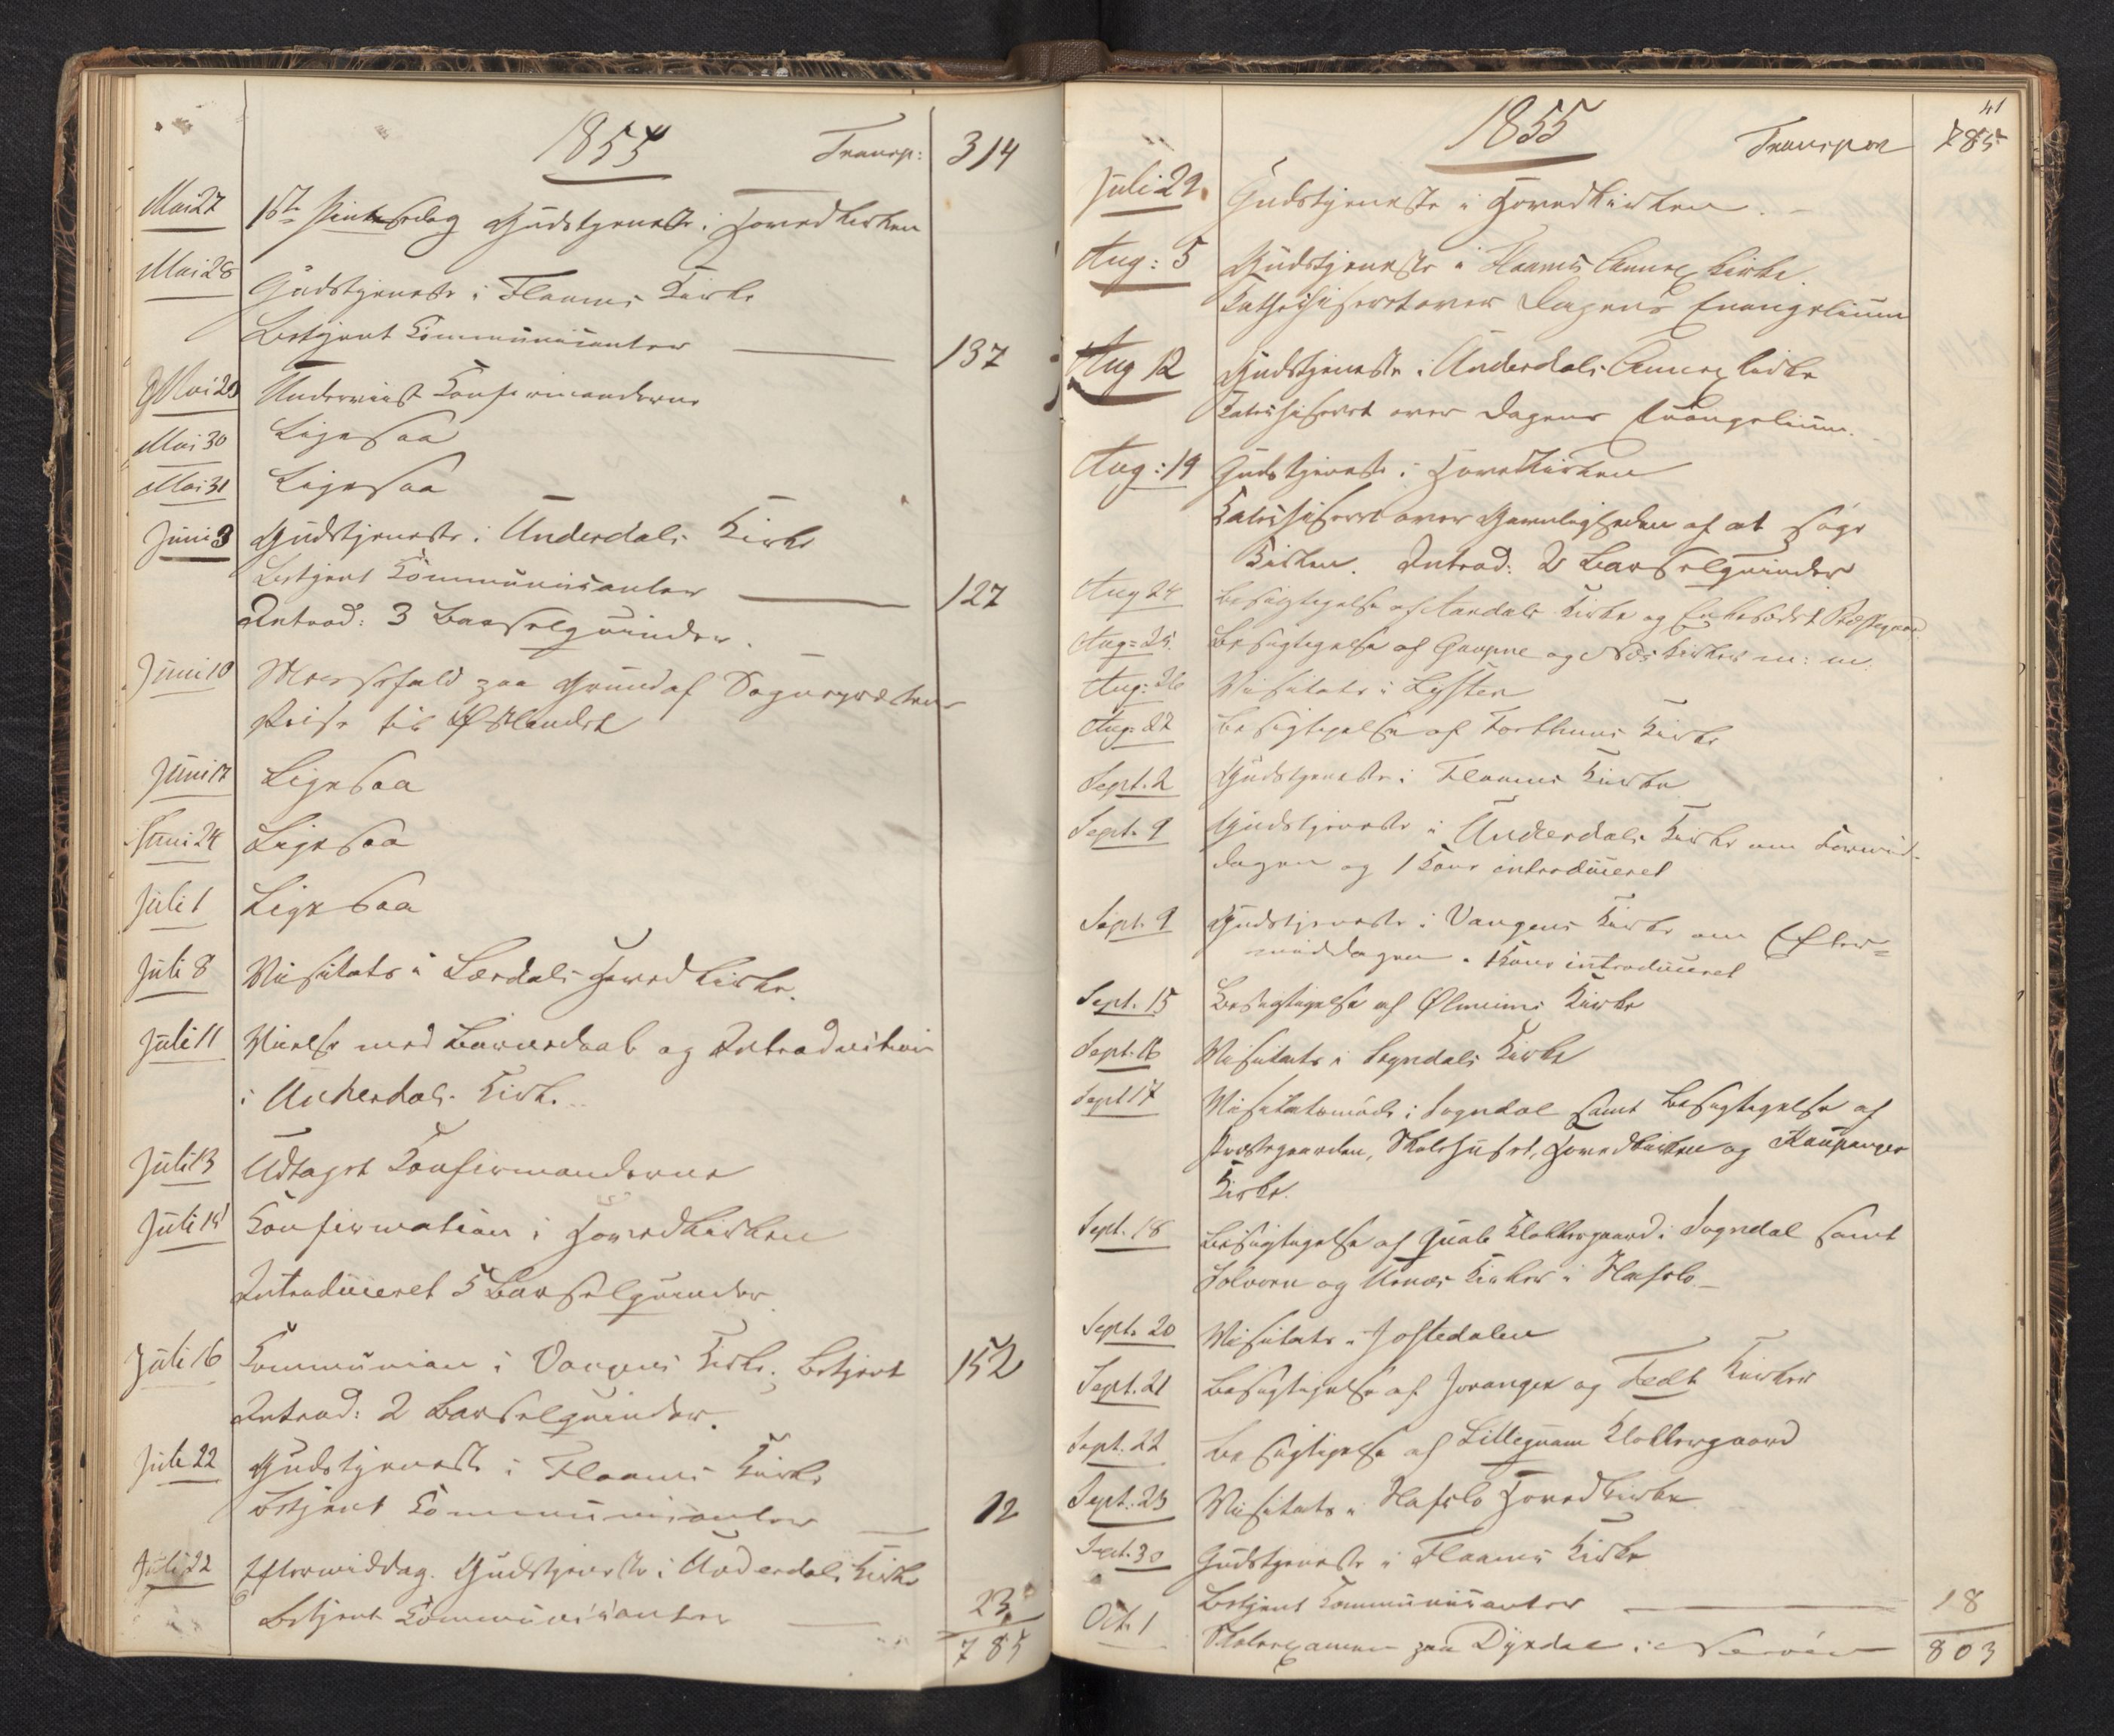 1855
Transp: 314
Mai 27 1ste Pintsedag Gudstjeneste i Hovedkirken
Mai 28 Gudstjeneste i Flaams Kirke
Betjent Communicanter 137
Mai 29 Underviist Confirmanderne
Mai 30 Ligesaa
Mai 31 Ligesaa
Juni 3 Gudstjeneste i Underdals Kirke
Betjent Communicanter 127
Introd: 3 Barselqvinder.
Juni 10 Messefald paa Grund af Sognepræstens
Reise til Østlandet
Juni 17 Ligesaa
Juni 24 Ligesaa
Juli 1 Ligesaa
Juli 8 Visitats i Lærdals Hovedkirke.
Juli 11 Vielse med Barnedaab og Introduction
i Underdals Kirke.
Juli 13 Udtaget Confirmanderne
Juli 15 Confirmation i Hovedkirken
Introduceret 5 Barselqvinder
Juli 16 Communion i Vangens Kirke. Betjent 152
Introd: 2 Barselqvinder.
Juli 22 Gudstjeneste i Flaams Kirke
Betjent Communicanter 12
Juli 22 Eftermiddag. Gudstjeneste i Underdals Kirke
Betjent Communicanter 23
785
41
1855
Transport 785
Juli 29 Gudstjeneste i Hovedkirken.
Aug: 5 Gudstjeneste i Flaams Annex Kirke.
Cathechiseret over Dagens Evangelium
Aug 12 Gudstjeneste i Underdals Annex Kirke
Catechiseret over Dagens Evangelium.
Aug: 19 Gudstjeneste i Hovedkirken
Catechiseret over Gavnligheden af at søge
Kirken. Introd: 2 Barselqvinder
Aug 24 Besigtigelse af Aardals Kirke og Enkesædet
Aug: 25. Besigtigelse af Gaupne og Næs Kirker m: m:
Aug: 26 Visitats i Lyster
Aug: 27 Besigtigelse af Forthuns Kirke
Sept. 2 Gudstjeneste i Flaams Kirke
Sept. 9 Gudstjeneste i Underdals Kirke om Formid-
dagen og 1 Kone introduceret
Sept. 9 Gudstjeneste i Vangens Kirke om Efter=
middagen. 1 Kone introduceret
Sept. 15 Besigtigelse af Ølmeims Kirke
Sept. 16 Visitats i Sogndals Kirke
Sept 17 Visitatsmøde i Sogndal samt Besigtigelse af
Præstegaarden, Skolehuset, Hovedkirken og Kaupanger
Kirke.
Sept. 18 Besigtigelse af Qvale Klokkergaard i Sogndal samt
Solvorn og Urnæs Kirker i Hafslo
Sept. 20 Visitats i Jostedalen
Sept. 21 Besigtigelse af Joranger og Fedt Kirker
Sept. 22 Besigtigelse af Lilleqvam Klokkergaard
Sept. 23 Visitats i Hafslo Hovedkirke
Sept. 30 Gudstjeneste i Flaams Kirke
Betjent Communicanter 18
Oct. 1 Skoleexamen paa Dyrdal i 803